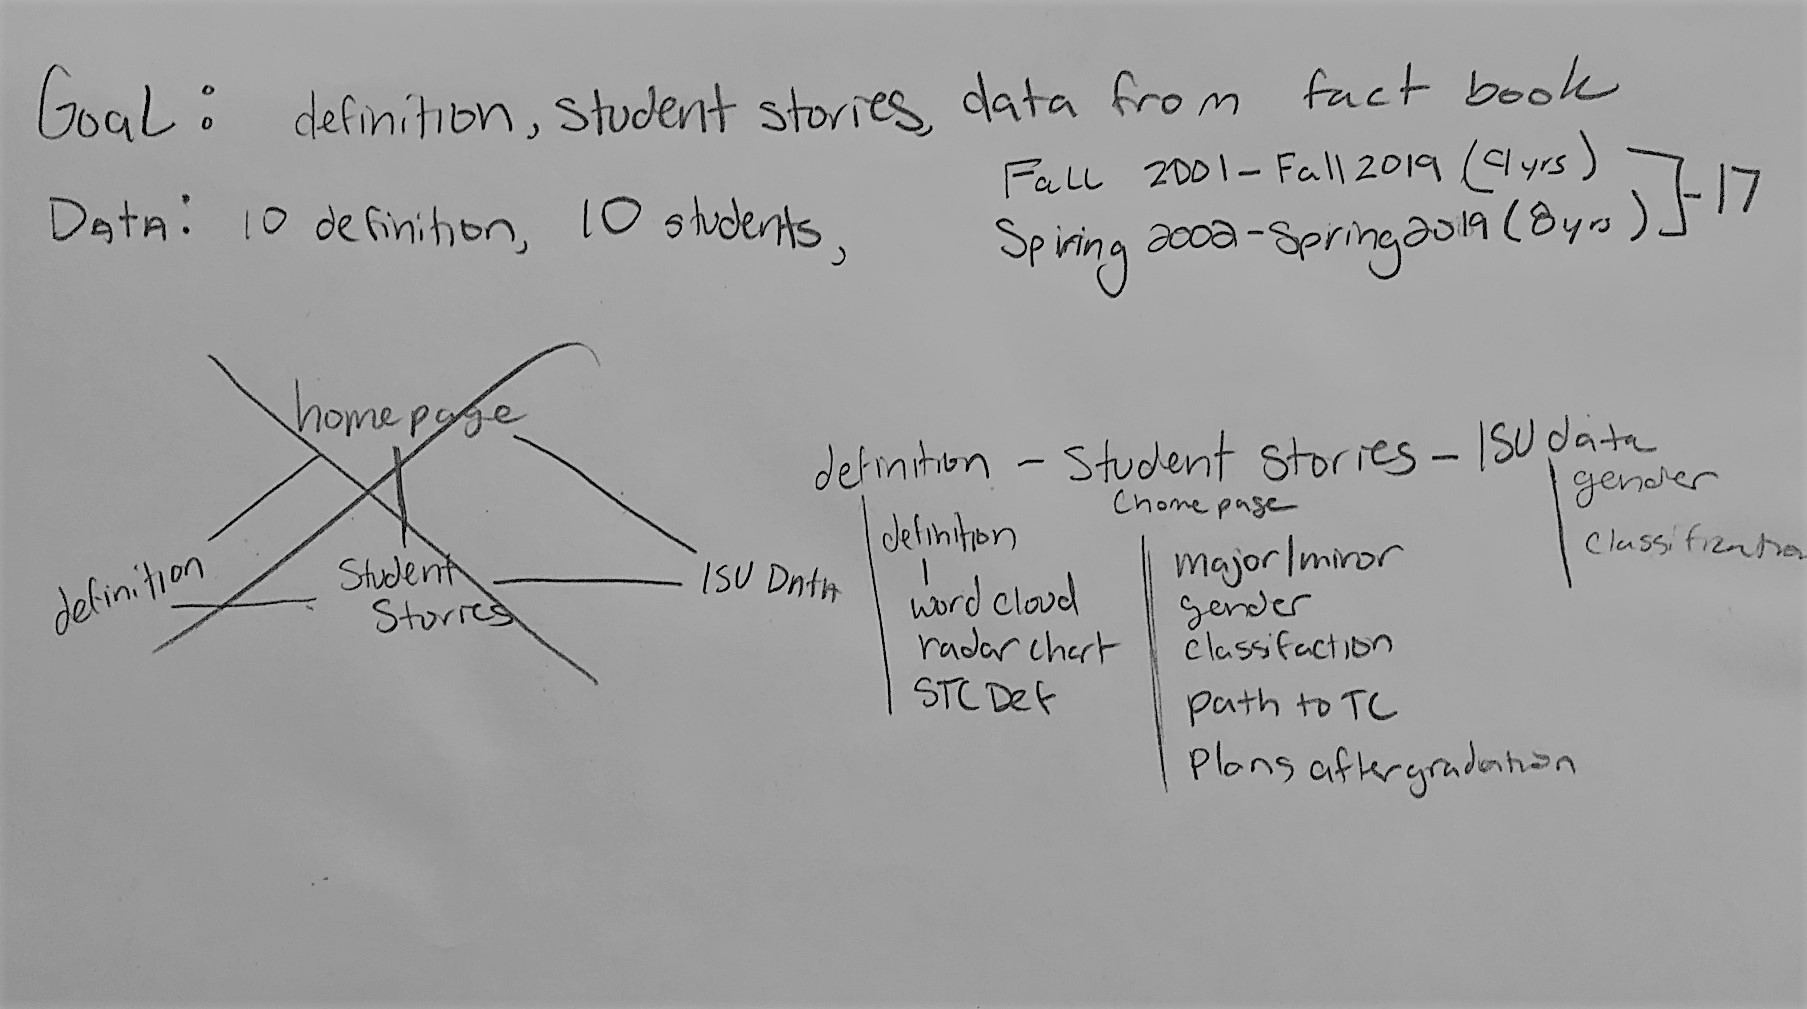 Goal: definition, student stories, data from fact book
Fall 2001-Fall 2019 (9yrs)
Data: 10 definition, 10 students,
Spiring 2002-Spring 2019 (8yrs)
]-17
homepage
definition
Student
Stories
ISU Data
definition - Student stories - ISU data
(homepage
definition
word cloud
radar chart
STC Def
major/minor
gender
classifaction
path to TC
Plans after gradation
gender